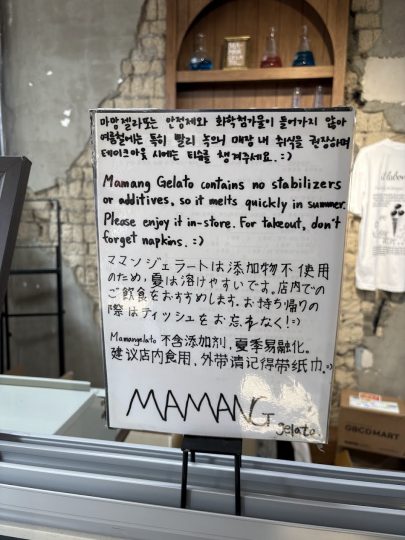 마망젤라또는 안정제와 화학첨가물이 들어가지 않아
여름철에는 특히 빨리 녹으니 매장 내 취식을 권장하며
테이크아웃 시에는 티슈를 챙겨주세요. :)
Mamang Gelato contains no stabilizers
or additives, so it melts quickly in summer.
Please enjoy it in-store. For takeout, don't
forget napkins. :)
ママンジェラートは添加物不使用
のため、夏は溶けやすいです。店内での
ご飲食をおすすめします。お持ち帰りの
際はティッシュをお忘れなく!:)
Mamangelato 不含添加剂, 夏季易融化.
建议店内食用, 外带请记得带纸巾.:)
MAMANG
gelato
GBCDMART